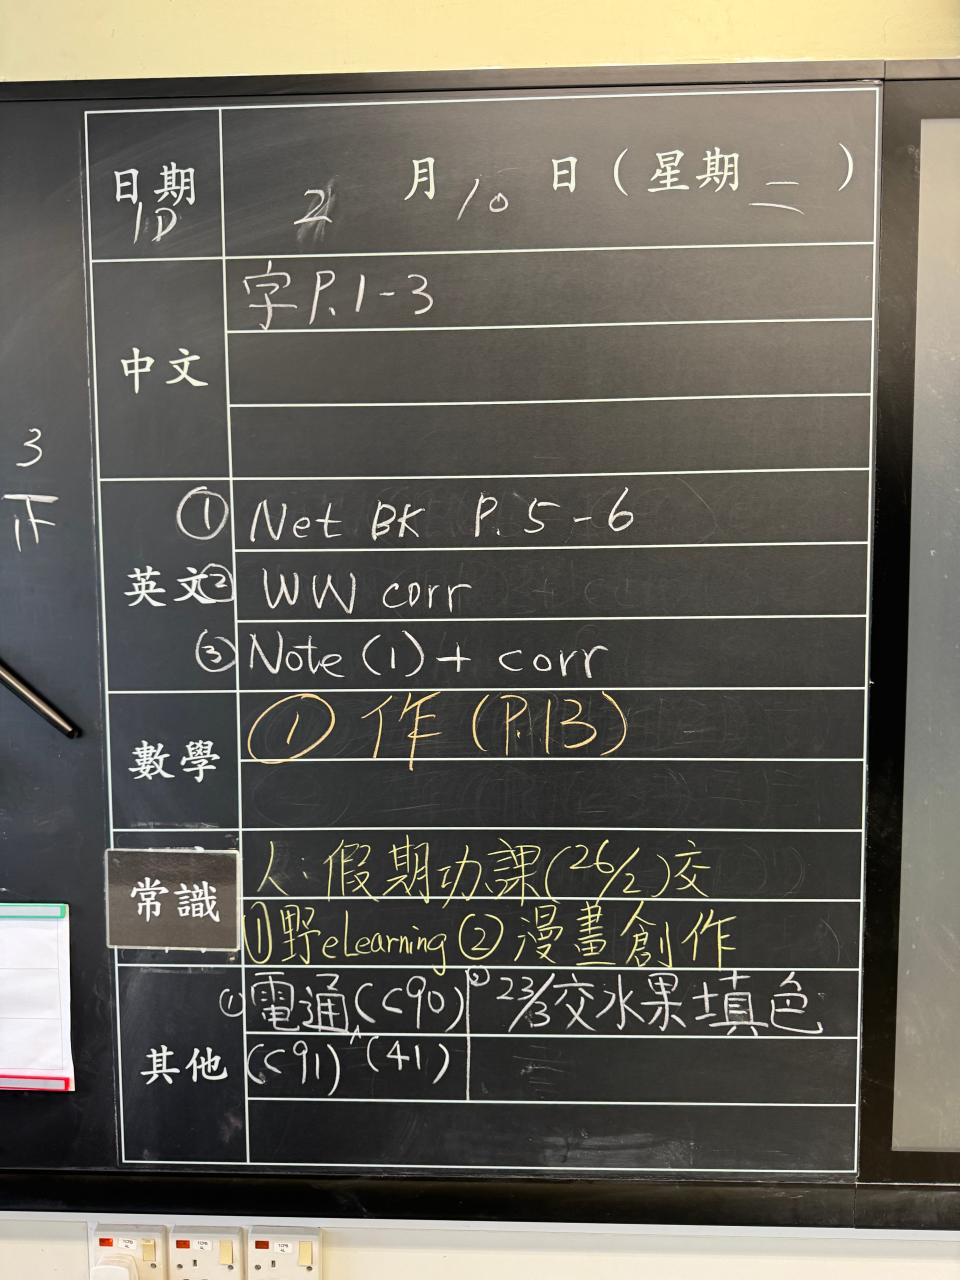 日期 2 月 10 日（星期二）
1D
中文
字 P.1-3
3
正
英文
① Net BK P. 5-6
② WW corr
③ Note (1) + corr
數學
① 作 (P.13)
常識
人：假期功課(26/2)交
①野eLearning ②漫畫創作
其他
① 電通(C90) ② 23/3交水果填色
(C91)^(41)